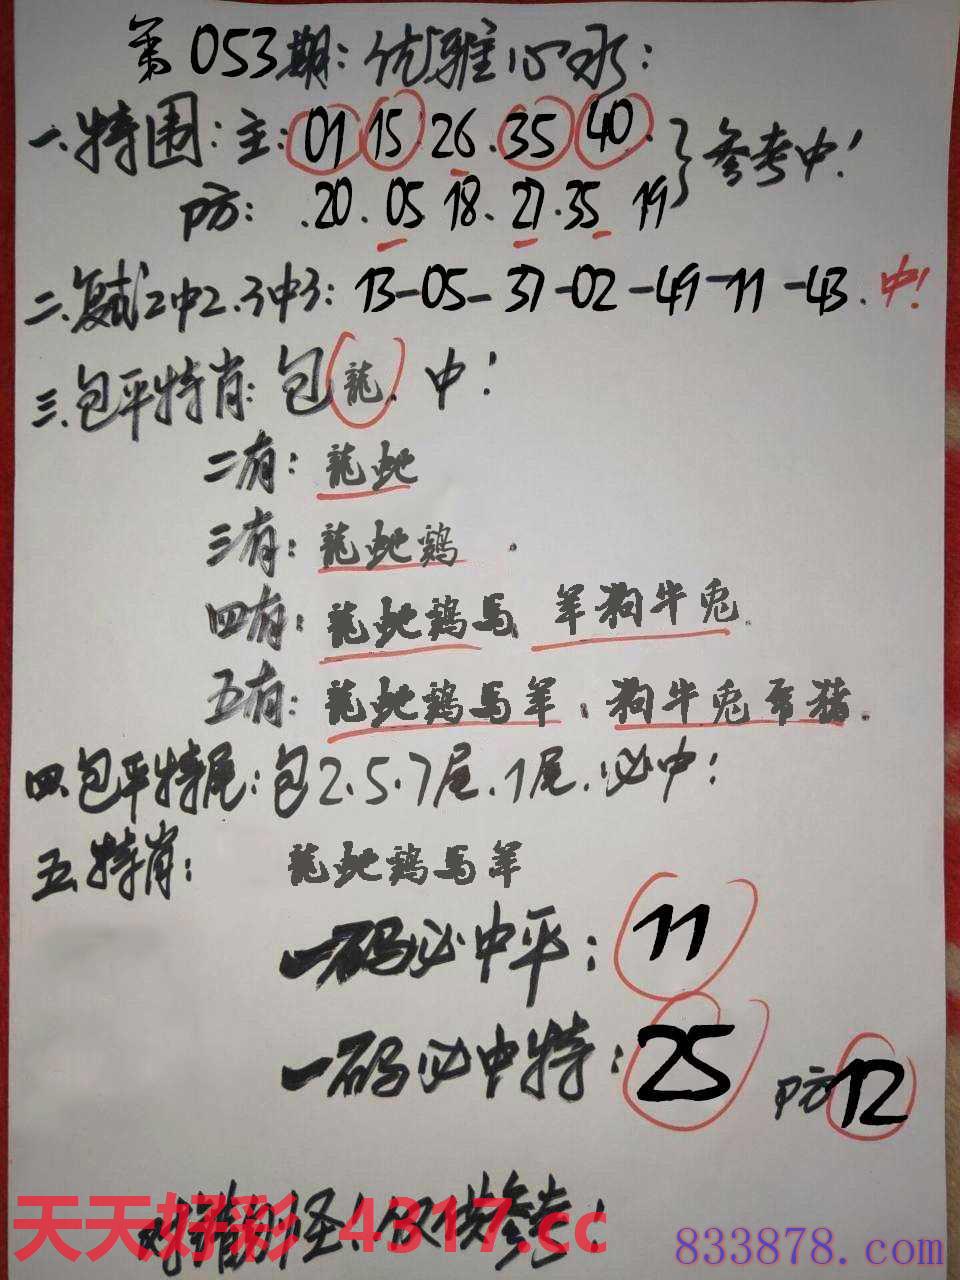 第053期：优雅心水：
一、特围：主：01 15 26．35 40．参考中！
防：．20．05 18．27．35 19
二、复试2中2．3中3：13-05-37-02-49-11-43．中！
三、包平特肖：包龍．中！
二有：龍虵
三有：龍虵鷄．
四有：龍虵鷄马、羊狗牛兎．
五有：龍虵鷄马羊；狗牛兎 猪．
四、包平特尾：包2．5．7尾．1尾．必中！
五、特肖：龍虵鷄马羊
一码必中平：11
一码必中特：25 防12
天天好彩 4317.cc
怪！仅供参考！
833878.com